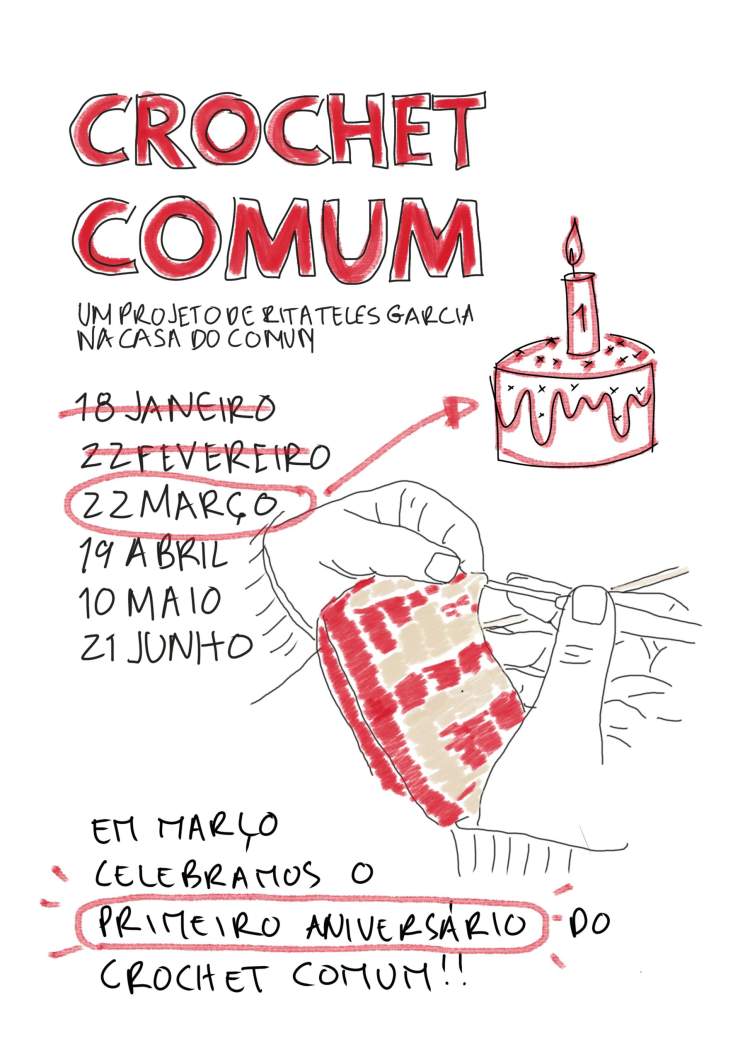 CROCHET
COMUM
UM PROJETO DE RITA TELES GARCIA
NA CASA DO COMUM
18 JANEIRO
22 FEVEREIRO
22 MARÇO
19 ABRIL
10 MAIO
21 JUNHO
1
EM MARÇO
CELEBRAMOS O
PRIMEIRO ANIVERSÁRIO DO
CROCHET COMUM!!